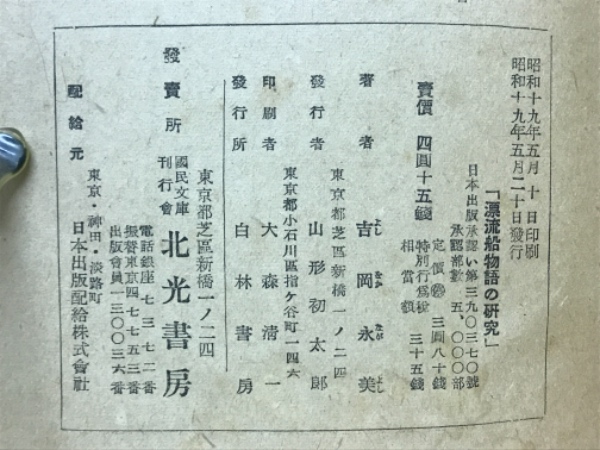 昭和十九年五月十日印刷
昭和十九年五月二十日發行
「漂流船物語の研究」
日本出版會承認い第三九〇三七〇號
承認部數 五、〇〇〇部
賣價 四圓十五錢
定價 ㊞ 三圓八十錢
特別行爲税相當額 三十五錢
著者 吉岡永美
よし をか なが よし
東京都芝區新橋一ノ二四
發行者 山形初太郎
東京都小石川區指ケ谷町一四六
印刷者 大森淸一
發行所 白林書房
東京都芝區新橋一ノ二四
發賣所 國民文庫刊行會 北光書房
電話銀座七三七二番
振替東京四七七五三番
出版會員一三〇〇三六番
東京・神田・淡路町
配給元 日本出版配給株式會社